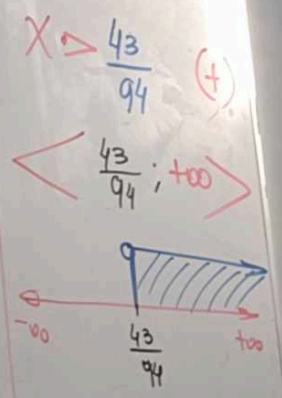 X > 43/94 (+)
< 43/94 ; +∞ >
-∞ 43/94 +∞